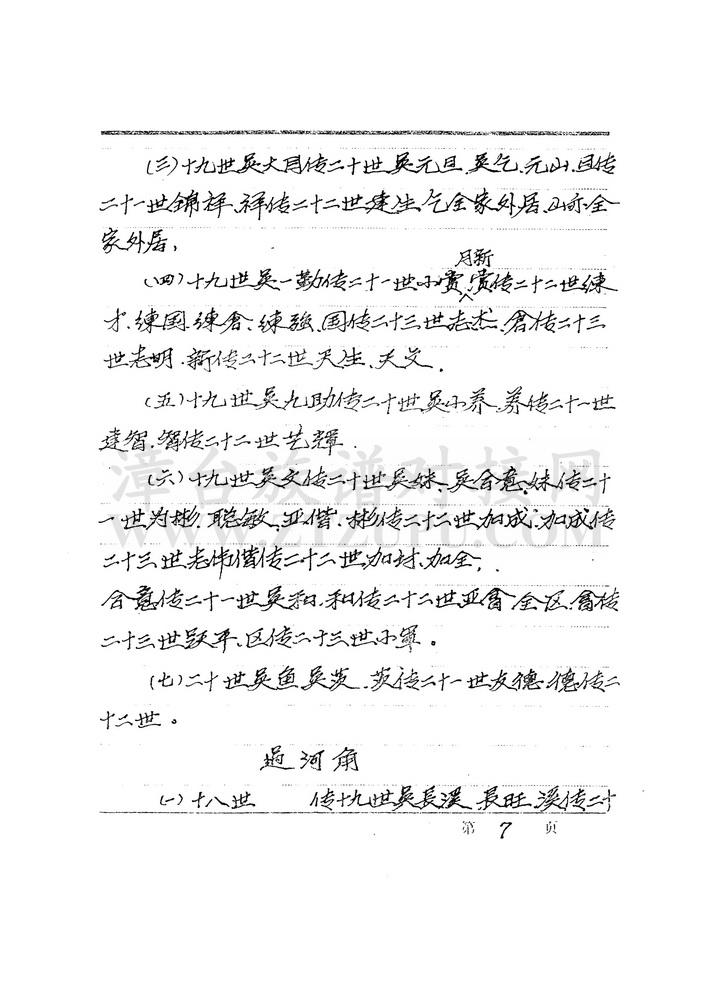 (三)十九世吴大目传二十世吴元旦、吴气、元山、旦传
二十一世锦祥、祥传二十二世建生、气全家外居、山亦全
家外居,
月新
(四)十九世吴一勤传二十一世小賞、賞传二十二世練
才、練国、練倉、練強、国传二十三世志杰、倉传二十三
世志明、新传二十二世天生、天文.
(五)十九世吴九助传二十世吴小养、养传二十一世
達智、智传二十二世艺輝.
(六)十九世吴文传二十世吴妹、吴合意、妹传二十
一世为彬、聪敏、亚偕、彬传二十二世加成、加成传
二十三世志伟偕传二十二世加封、加全,
合意传二十一世吴和、和传二十二世亚畲、全区、畲传
二十三世跃平、区传二十三世小軍。
(七)二十世吴鱼吴茨、茨传二十一世友德、德传二
十二世。
過河角
(一)十八世 传十九世吴長溪、長旺、溪传二十
第 7 页
漳台族谱对接网